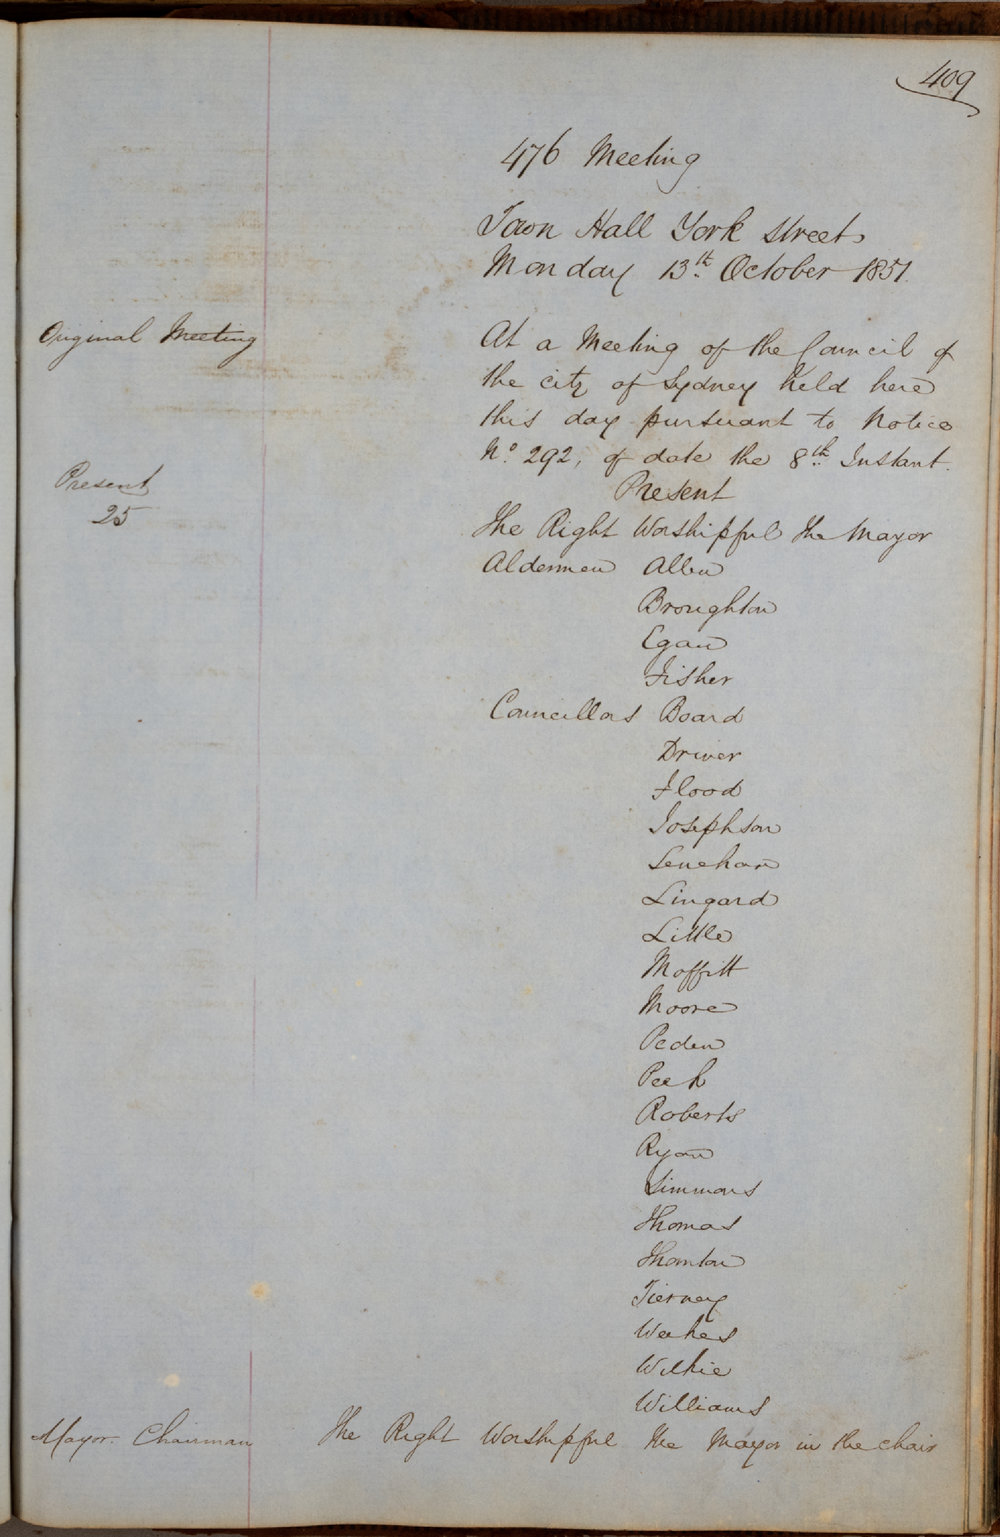 409
476 Meeting
Town Hall York Street
Monday 13th October 1851.
Original Meeting
At a Meeting of the Council of
the city of Sydney held here
this day pursuant to Notice
No. 292, of date the 8th Instant.
Present
25
Present
The Right Worshipful the Mayor
Aldermen Allen
Broughton
Egan
Fisher
Councillors Board
Driver
Flood
Josephson
Lenehan
Lingard
Little
Moffitt
Moore
Peden
Peek
Roberts
Ryan
Simmons
Thomas
Thornton
Tierney
Weekes
Wilkie
Williams
Mayor. Chairman
The Right Worshipful the Mayor in the chair